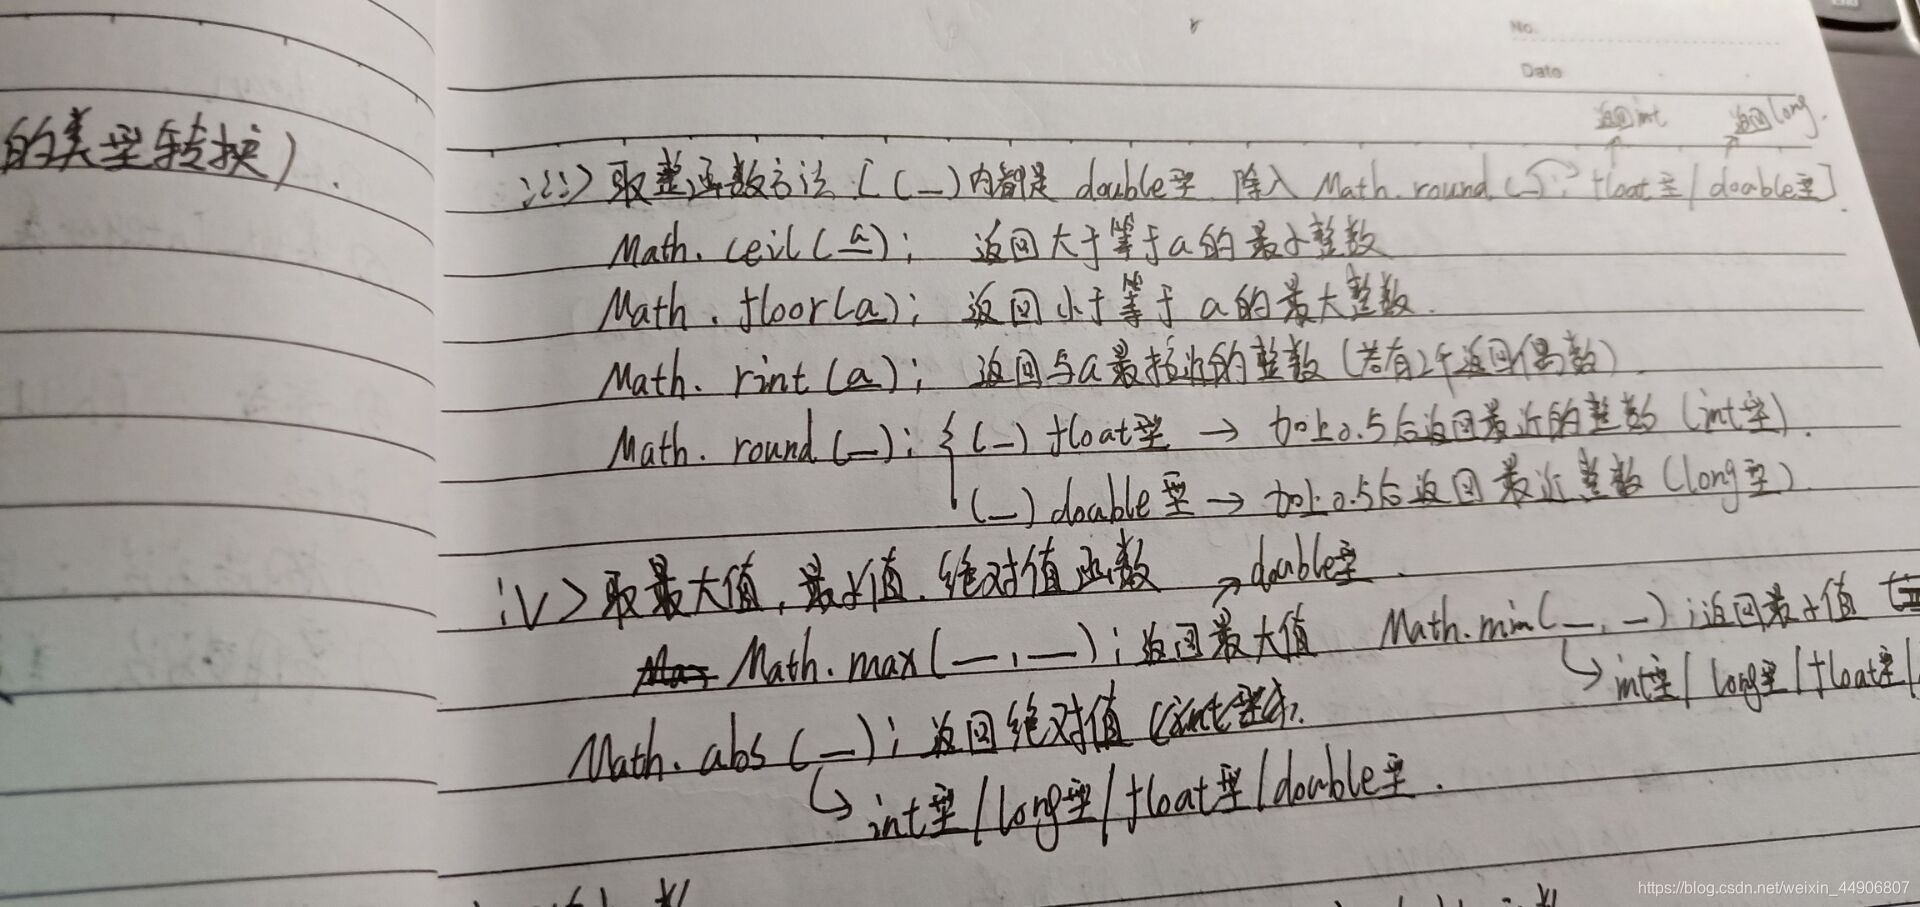 No.
Date
的类型转换).
返回int 返回long.
iii>取整函数方法[(_)内都是double型.除入Math.round(_);float型/double型].
Math.ceil(a); 返回大于等于a的最小整数
Math.floor(a); 返回小于等于a的最大整数.
Math.rint(a); 返回与a最接近的整数(若有2个返回偶数).
Math.round(_); { (_)float型 → 加上0.5后返回最近的整数(int型).
(_)double型 → 加上0.5后返回最近整数(long型).
iv>取最大值,最小值.绝对值函数 ↗double型.
Math.max(_,_);返回最大值 Math.min(_,_);返回最小值
↳int型/long型/float型/
Math.abs(_);返回绝对值
↳int型/long型/float型/double型.
https://blog.csdn.net/weixin_44906807